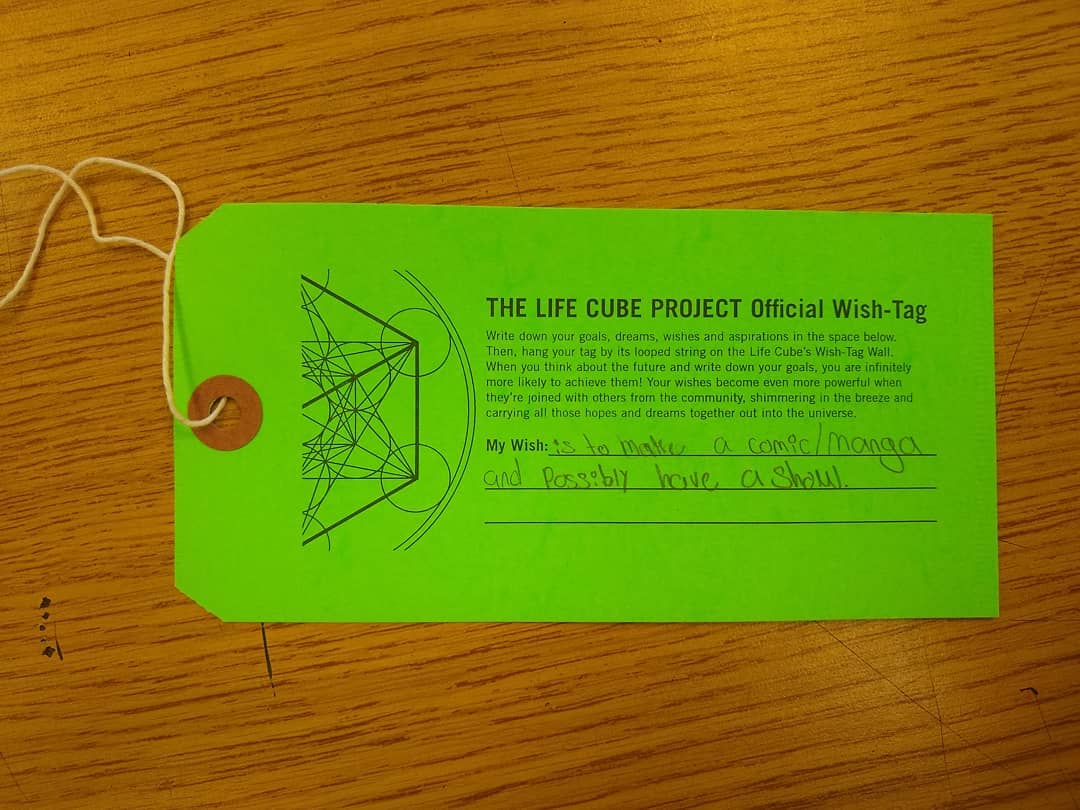 THE LIFE CUBE PROJECT Official Wish-Tag
Write down your goals, dreams, wishes and aspirations in the space below.
Then, hang your tag by its looped string on the Life Cube's Wish-Tag Wall.
When you think about the future and write down your goals, you are infinitely
more likely to achieve them! Your wishes become even more powerful when
they're joined with others from the community, shimmering in the breeze and
carrying all those hopes and dreams together out into the universe.
My Wish: is to make a comic/manga
and Possibly have a Show.